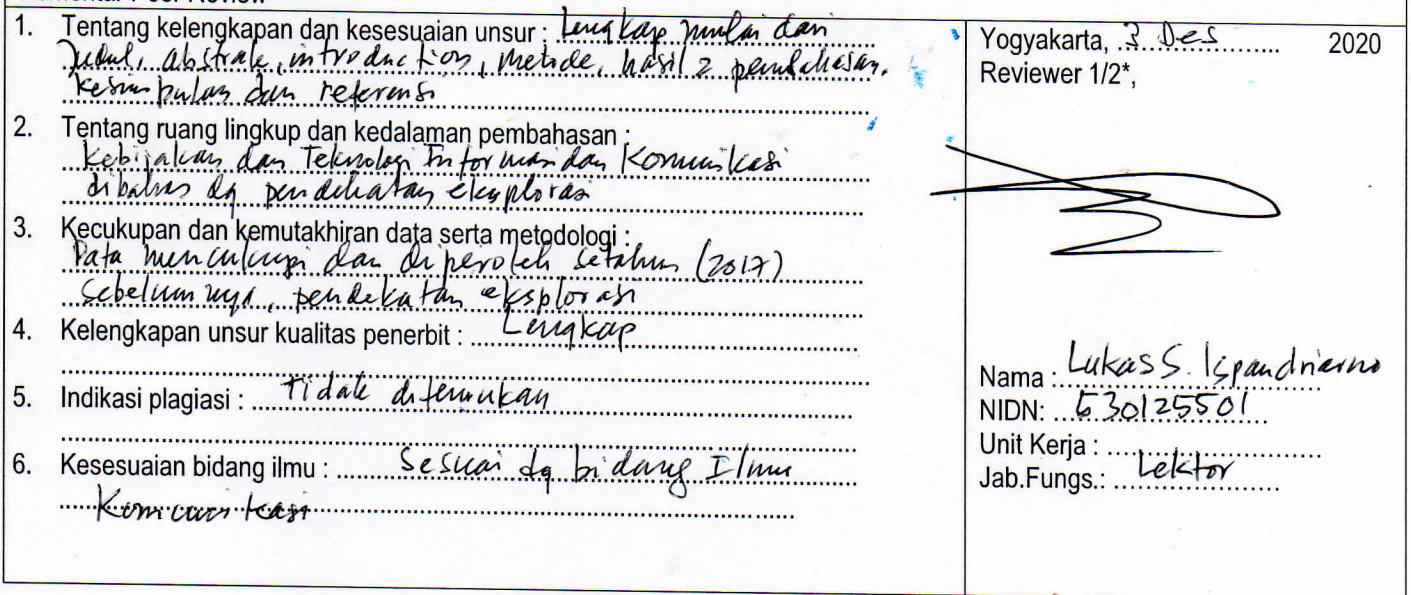 1. Tentang kelengkapan dan kesesuaian unsur : Lengkap mulai dari
judul, abstrak, introduction, metode, hasil 2 pembahasan,
kesimpulan dan referensi
2. Tentang ruang lingkup dan kedalaman pembahasan :
Kebijakan dan Teknologi Informasi dan Komunikasi
dibahas dg pendekatan eksplorasi
3. Kecukupan dan kemutakhiran data serta metodologi :
Data mencukupi dan diperoleh setahun (2017)
sebelumnya, pendekatan eksplorasi
4. Kelengkapan unsur kualitas penerbit : Lengkap
5. Indikasi plagiasi : Tidak ditemukan
6. Kesesuaian bidang ilmu : Sesuai dg bidang Ilmu
Komunikasi
Yogyakarta, 3 Des 2020
Reviewer 1/2*,
Nama : Lukas S. Ispandriarno
NIDN: 530125501
Unit Kerja :
Jab.Fungs.: Lektor